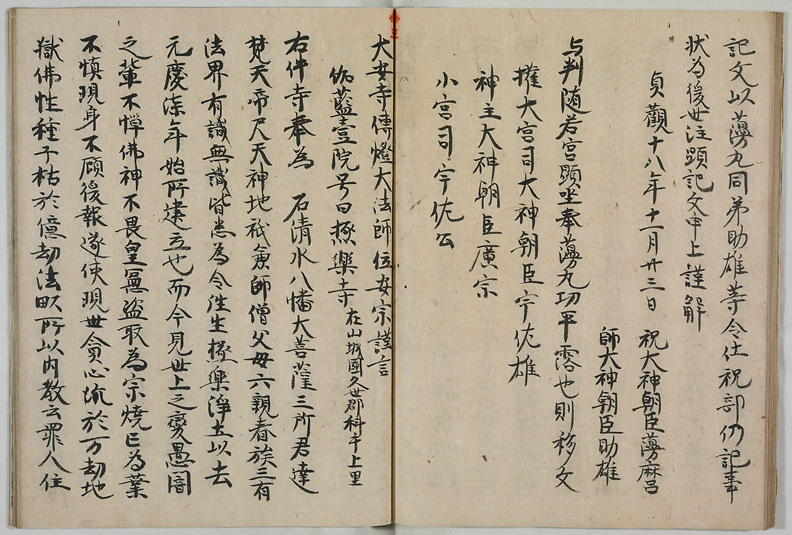 記文以蕩丸同弟助雄等令仕祝部仍記事
状為後世注顕記文申上謹解
貞觀十八年十一月廿三日 祝大神朝臣蕩麻呂
師大神朝臣助雄
与判随若宮顕坐奉蕩丸功平露也則移文
擬大宮司大神朝臣宇佐雄
神主大神朝臣廣宗
小宮司宇佐公
大安寺傳燈大法師位安宗謹言
伽藍壹院号曰極樂寺 在山城國久世郡科手上里
右件寺奉為 石清水八幡大菩薩三所君達
梵天帝尺天神地祇兼師僧父母六親眷族三有
法界有識無識皆悉為令往生極樂淨土以去
元慶漆年始所建立也而今見世上之變愚闇
之輩不憚佛神不畏皇憲盗取為宗燒亡為業
不慎現身不顧後報遂使現世貪心流於万劫地
獄佛性種子枯於億劫法畋所以内教云罪人住